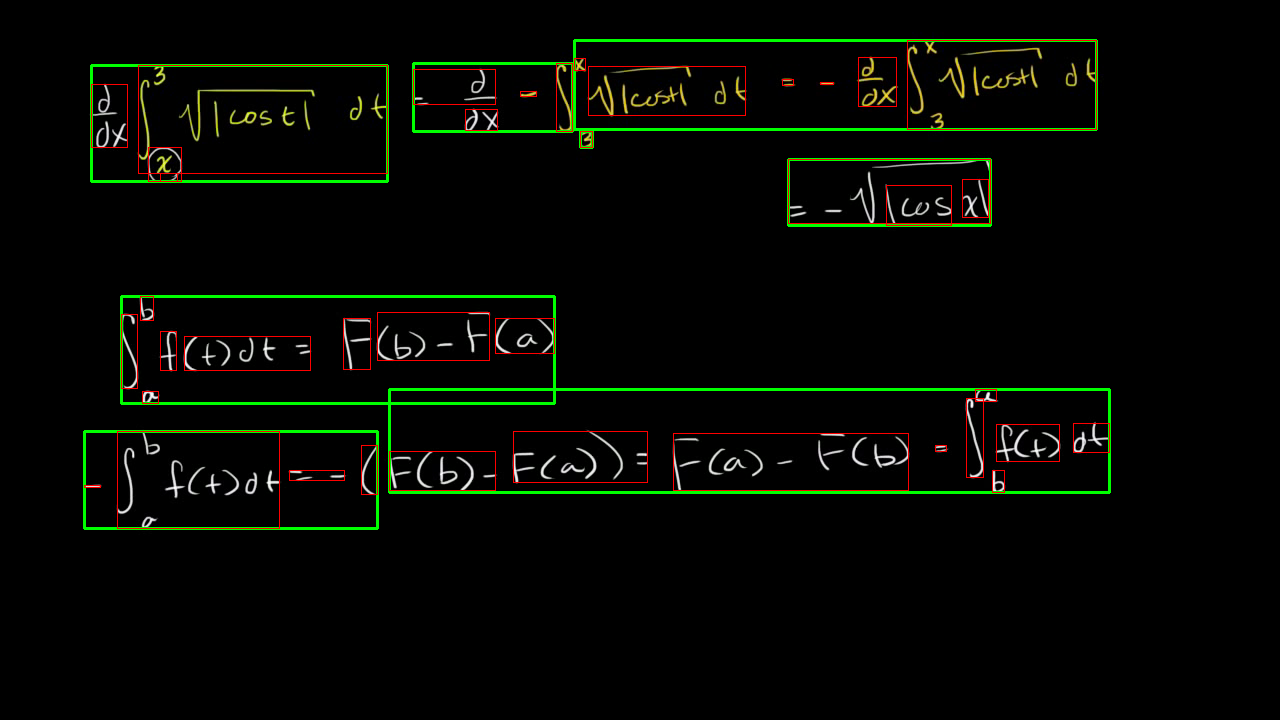 d/dx ∫_x^3 √|cos t| dt = d/dx - ∫_3^x √|cos t| dt = - d/dx ∫_3^x √|cos t| dt
= -√|cos x|
∫_a^b f(t)dt = F(b) - F(a)
- ∫_a^b f(t)dt = - (F(b) - F(a)) = F(a) - F(b) = ∫_b^a f(t) dt